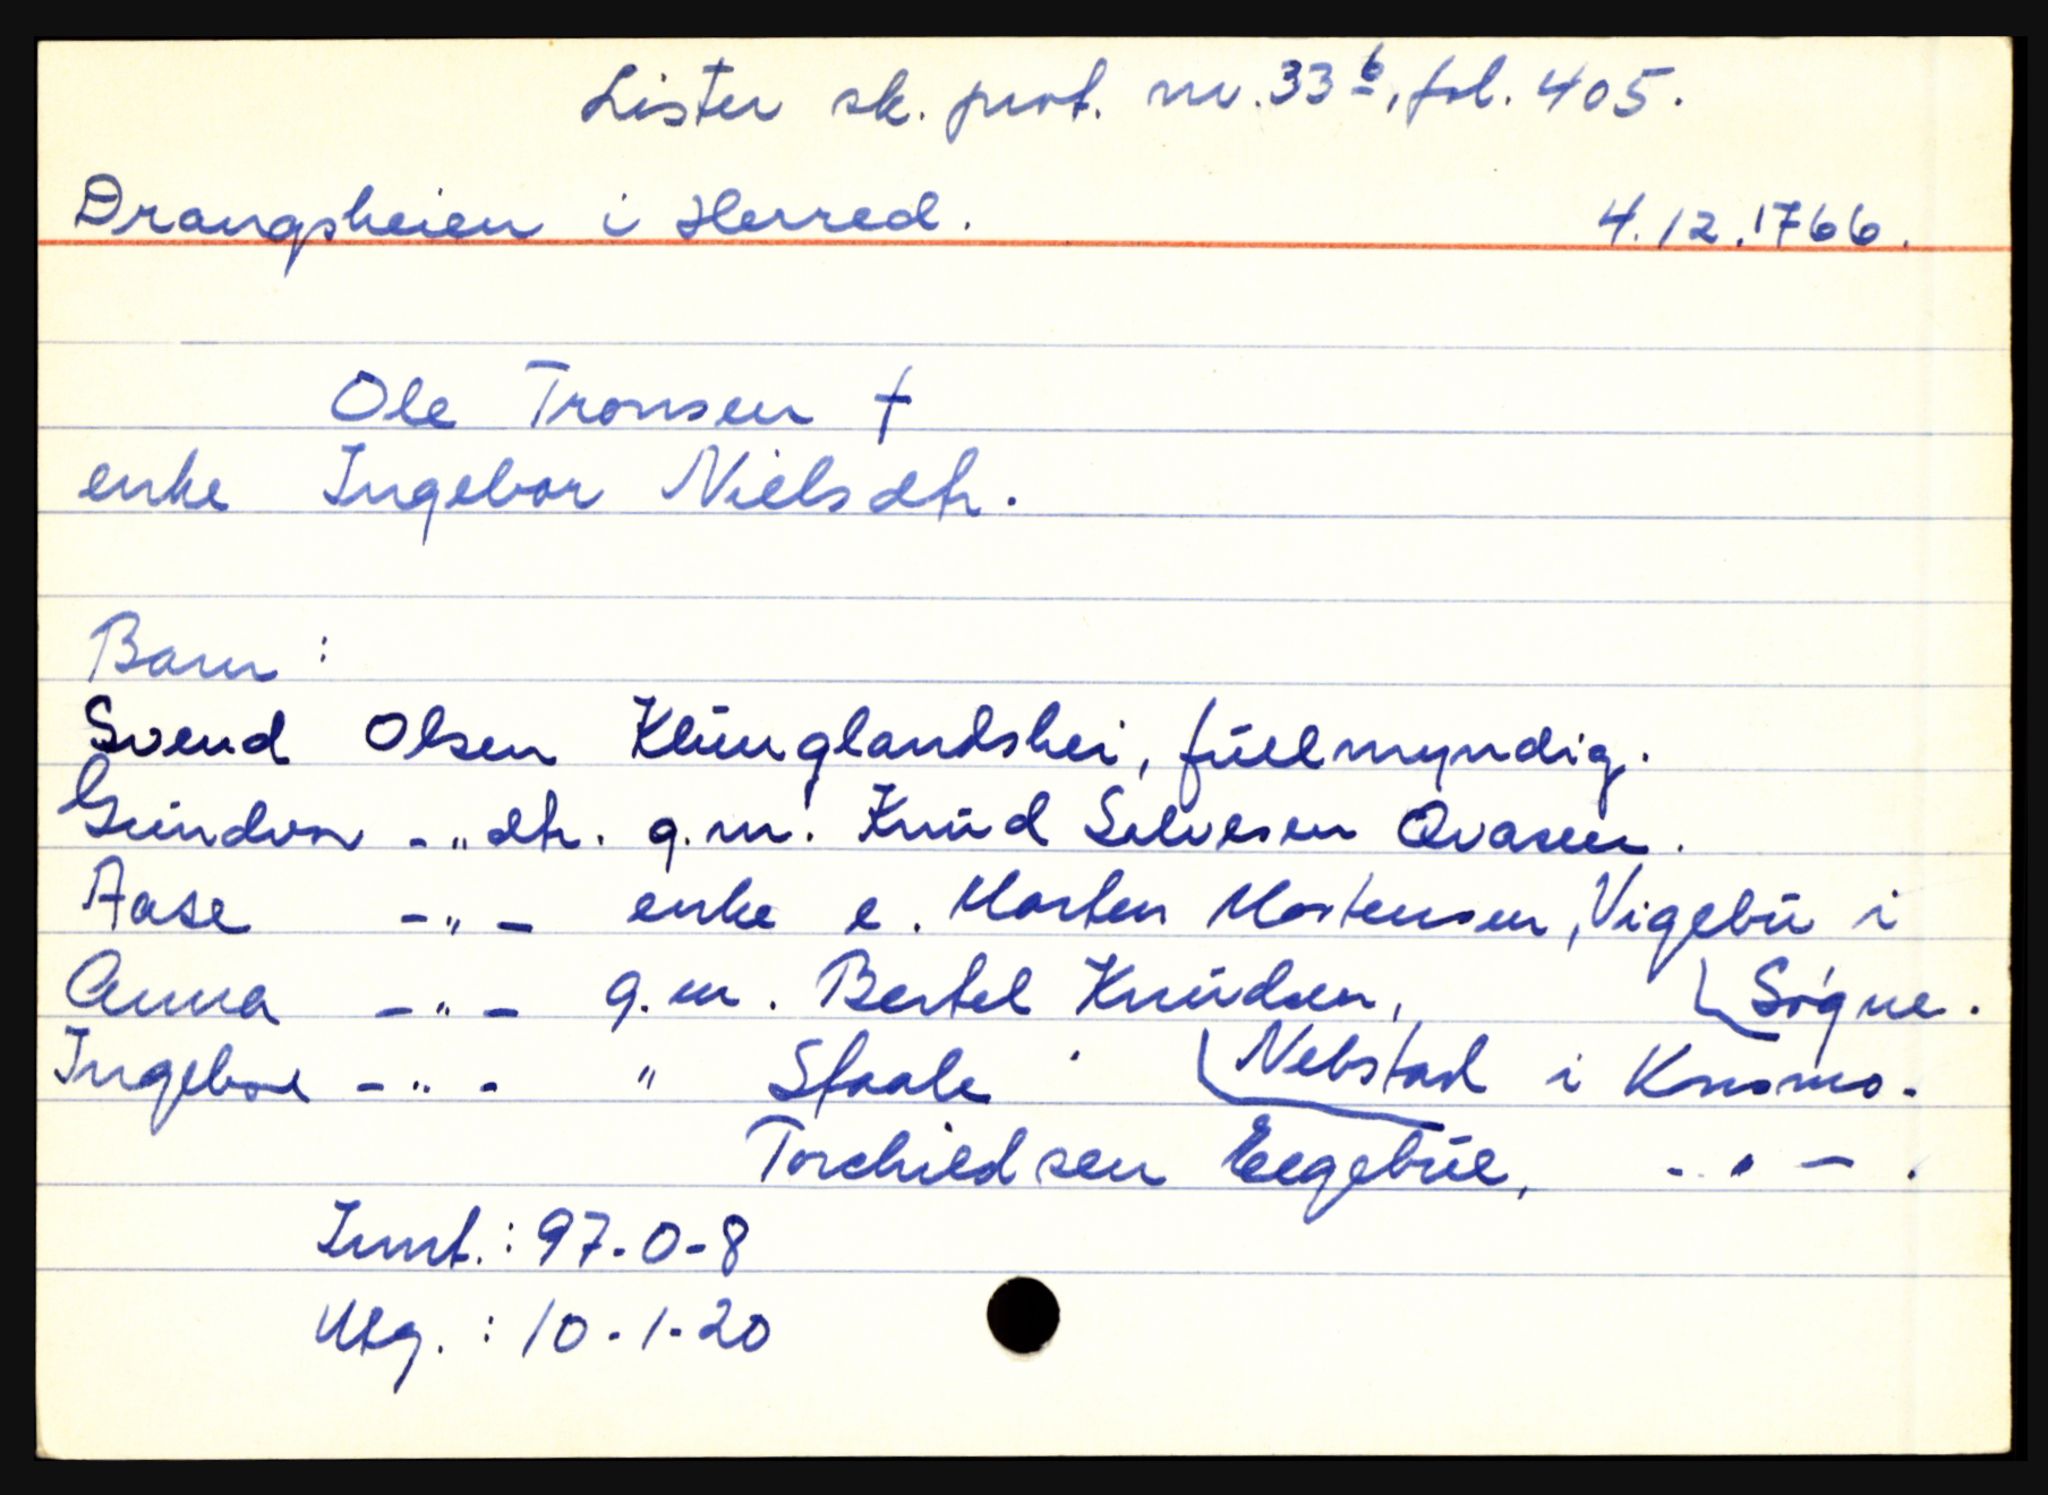 Lister sk. prot. nr. 33 b, fol. 405.
Drangsheien i Herred. 4.12.1766.
Ole Tronsen †
enke Ingebor Nielsdtr.
Barn:
Svend Olsen Klunglandshei, fullmyndig.
Gundvor -"- dtr. g.m. Knud Salvesen Qvasen.
Aase -"- enke e. Morten Mortensen, Vigebu i
Anna -"- g.m. Bertel Knudsen, Søgne.
Ingebor -"- " Staale Nebstad i Konsmo.
Torchildsen Eegebul, -"-.
Innt.: 97-0-8
Utg.: 10-1-20